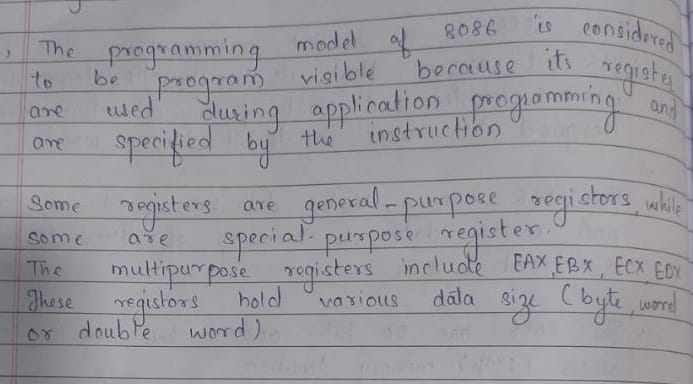 The programming model of 8086 is considered
to be program visible because its register
are used during application programming and
are specified by the instruction
Some registers are general-purpose registors, while
some are special-purpose register.
The multipurpose registers include EAX, EBX, ECX, EDX
These registors hold various data size (byte, word
or double word)